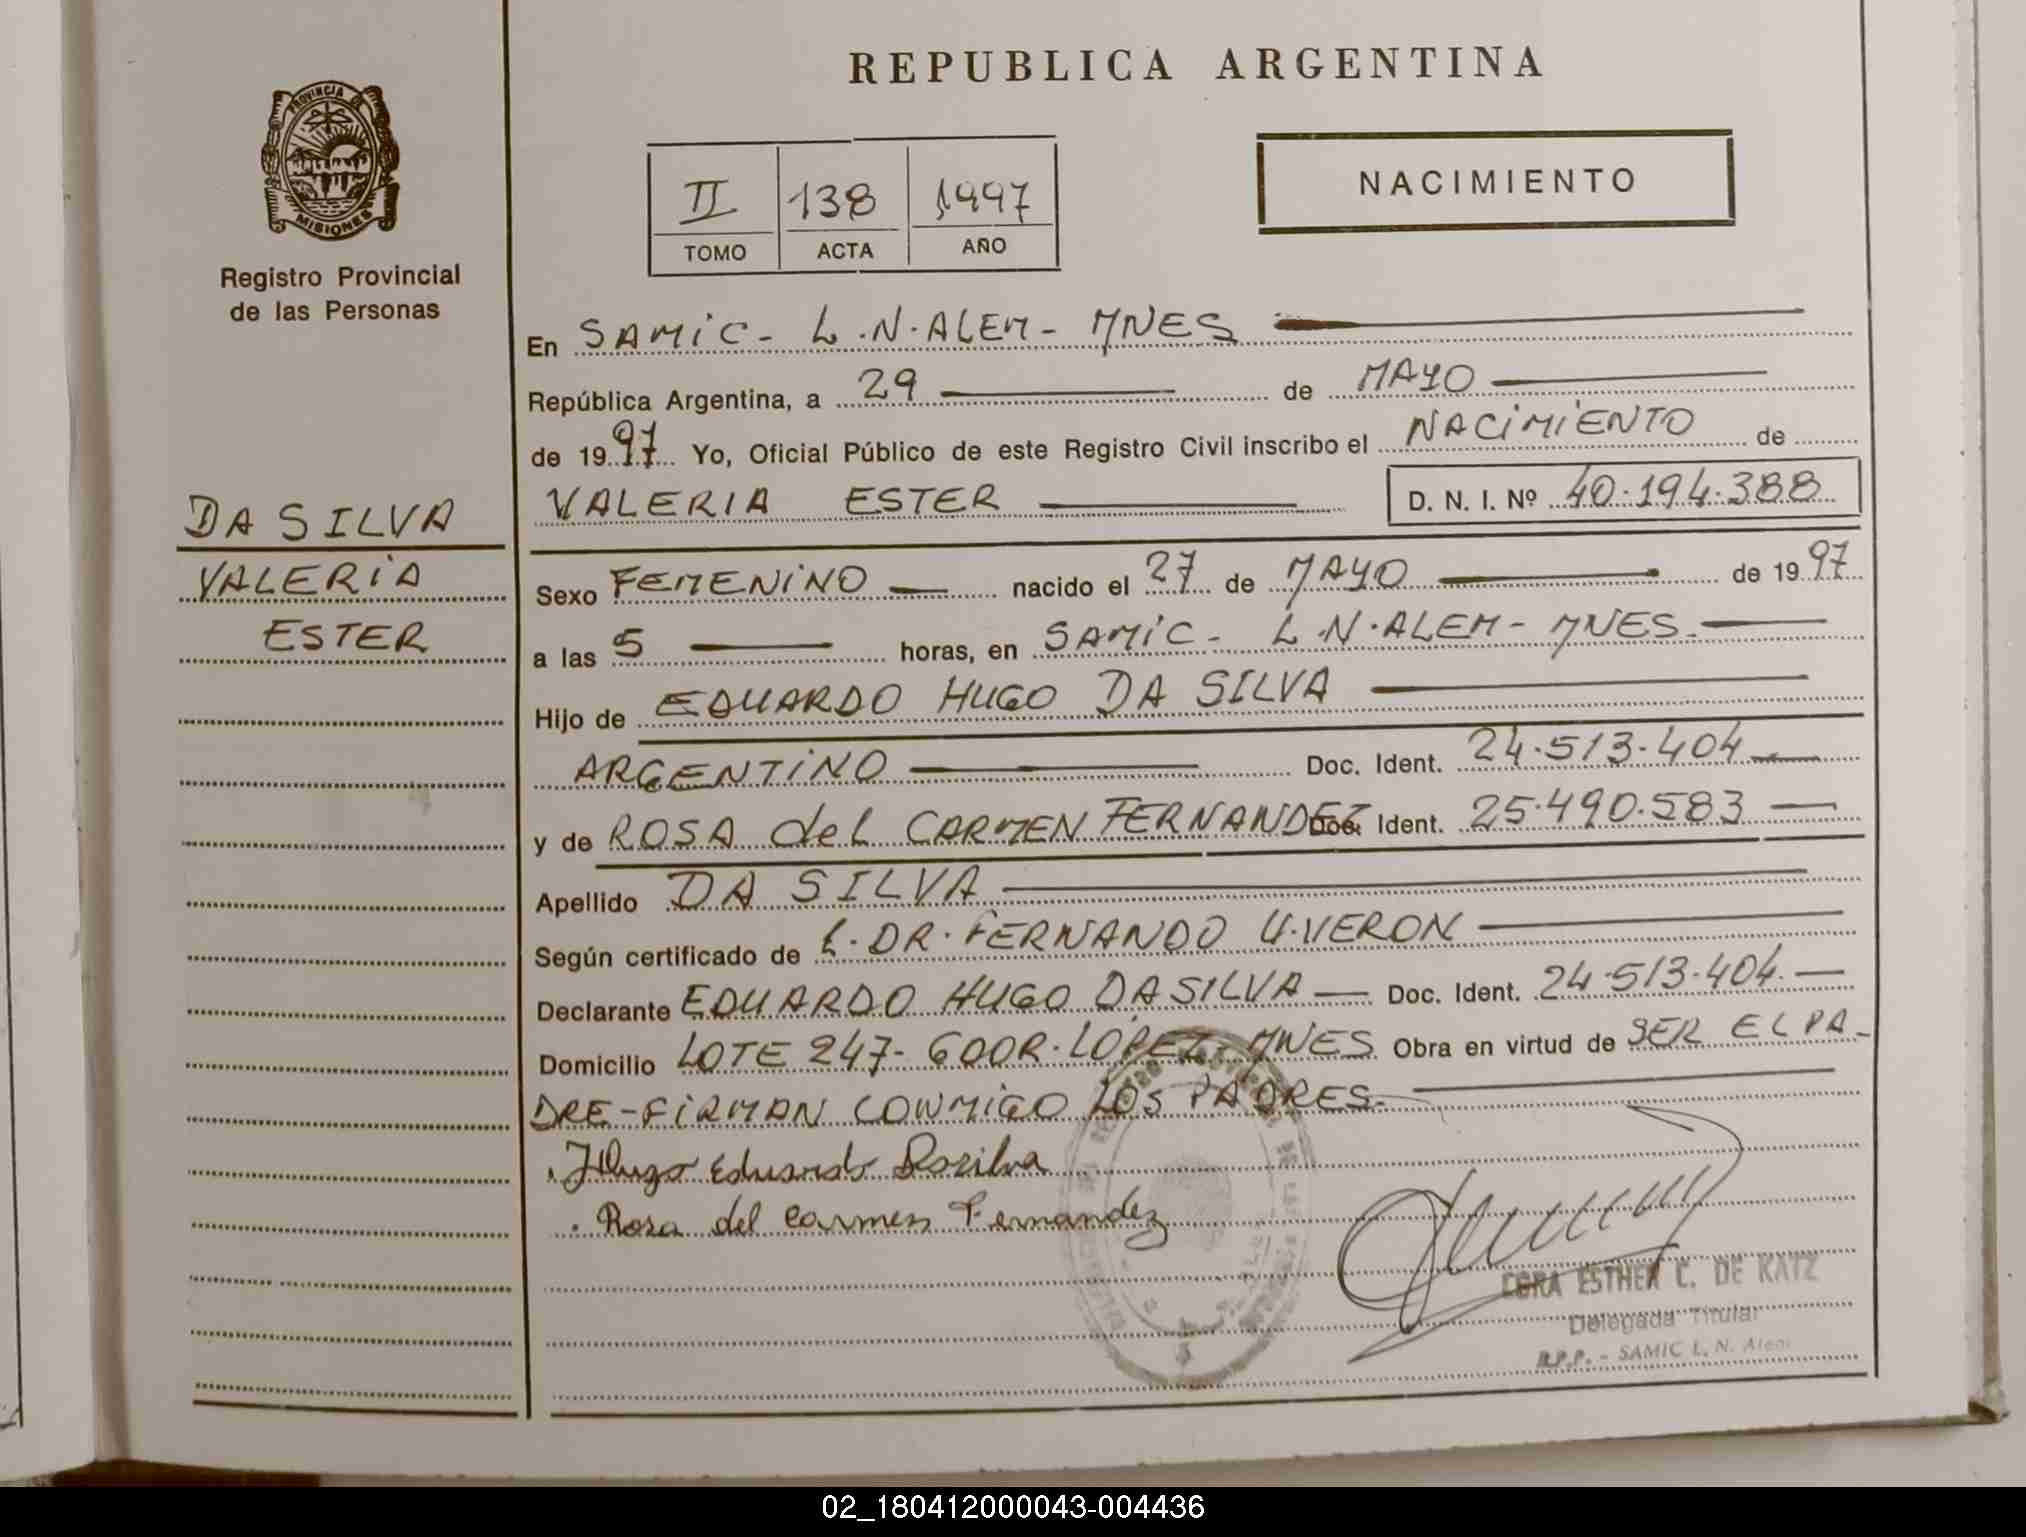 REPUBLICA ARGENTINA
PROVINCIA DE
MISIONES
Registro Provincial
de las Personas
II 138 1997
TOMO ACTA AÑO
NACIMIENTO
En SAMIC - L.N. ALEM - MNES
República Argentina, a 29 de MAYO
de 1997 Yo, Oficial Público de este Registro Civil inscribo el NACIMIENTO de
VALERIA ESTER D. N. I. Nº 40.194.388
DA SILVA
VALERIA
ESTER
Sexo FEMENINO nacido el 27 de MAYO de 1997
a las 5 horas, en SAMIC - L.N. ALEM - MNES.
Hijo de EDUARDO HUGO DA SILVA
ARGENTINO Doc. Ident. 24.513.404
y de ROSA del CARMEN FERNANDEZ Doc. Ident. 25.490.583
Apellido DA SILVA
Según certificado de DR. FERNANDO VERON
Declarante EDUARDO HUGO DA SILVA Doc. Ident. 24.513.404.
Domicilio LOTE 247 - GDOR. LOPEZ - MNES Obra en virtud de SER EL PA-
DRE - FIRMAN CONMIGO LOS PADRES.
Hugo Eduardo Dasilva
Rosa del Carmen Fernandez
CORA ESTHER C. DE KATZ
Delegada Titular
R.P.P. - SAMIC L. N. Alem
02_180412000043-004436